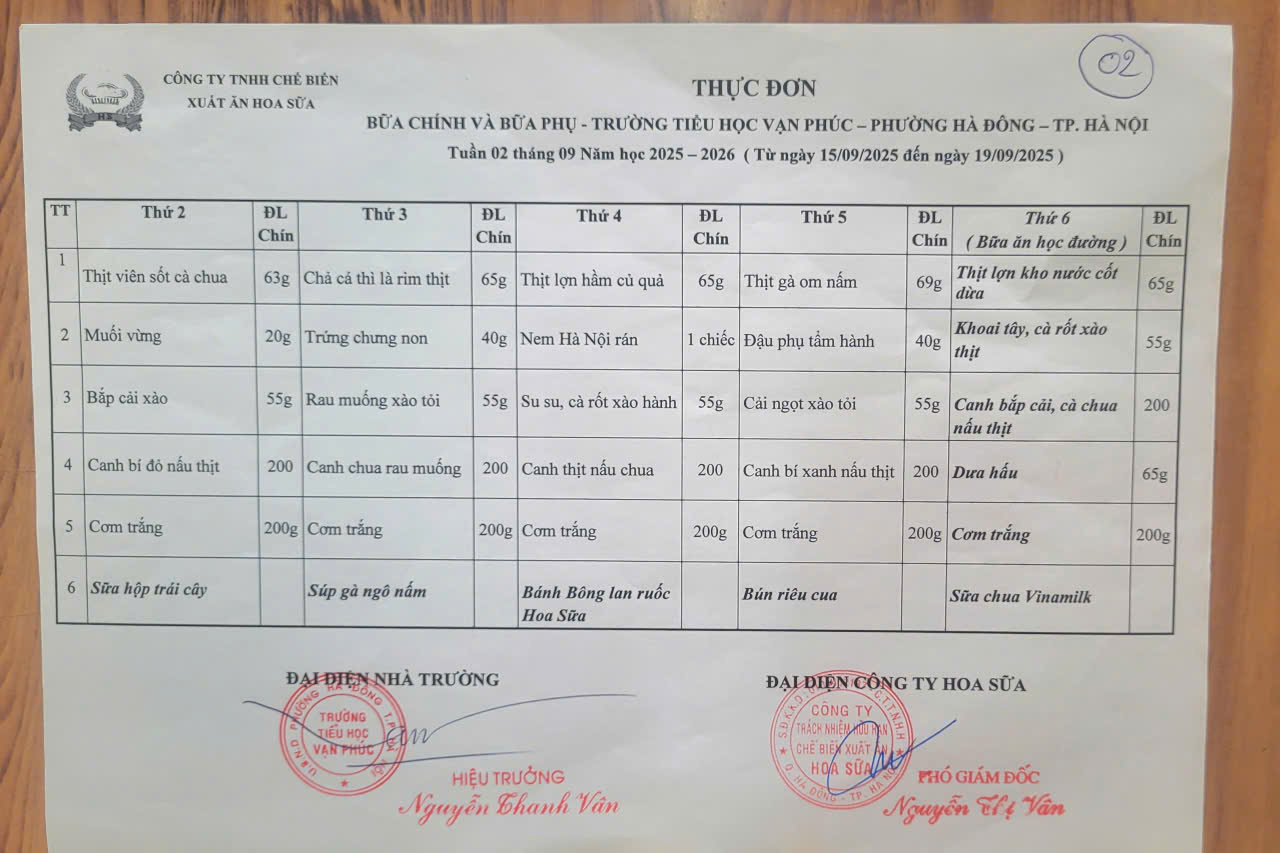 02
CÔNG TY TNHH CHẾ BIẾN
XUẤT ĂN HOA SỮA
HS
THỰC ĐƠN
BỮA CHÍNH VÀ BỮA PHỤ - TRƯỜNG TIỂU HỌC VẠN PHÚC – PHƯỜNG HÀ ĐÔNG – TP. HÀ NỘI
Tuần 02 tháng 09 Năm học 2025 – 2026 ( Từ ngày 15/09/2025 đến ngày 19/09/2025 )
TT Thứ 2 ĐL Chín Thứ 3 ĐL Chín Thứ 4 ĐL Chín Thứ 5 ĐL Chín Thứ 6 ( Bữa ăn học đường ) ĐL Chín
1 Thịt viên sốt cà chua 63g Chả cá thì là rim thịt 65g Thịt lợn hầm củ quả 65g Thịt gà om nấm 69g Thịt lợn kho nước cốt dừa 65g
2 Muối vừng 20g Trứng chưng non 40g Nem Hà Nội rán 1 chiếc Đậu phụ tẩm hành 40g Khoai tây, cà rốt xào thịt 55g
3 Bắp cải xào 55g Rau muống xào tỏi 55g Su su, cà rốt xào hành 55g Cải ngọt xào tỏi 55g Canh bắp cải, cà chua nấu thịt 200
4 Canh bí đỏ nấu thịt 200 Canh chua rau muống 200 Canh thịt nấu chua 200 Canh bí xanh nấu thịt 200 Dưa hấu 65g
5 Cơm trắng 200g Cơm trắng 200g Cơm trắng 200g Cơm trắng 200g Cơm trắng 200g
6 Sữa hộp trái cây Súp gà ngô nấm Bánh Bông lan ruốc Hoa Sữa Bún riêu cua Sữa chua Vinamilk
ĐẠI DIỆN NHÀ TRƯỜNG
U.B.N.D PHƯỜNG HÀ ĐÔNG T.P HÀ NỘI
TRƯỜNG
TIỂU HỌC
VẠN PHÚC
HIỆU TRƯỞNG
Nguyễn Thanh Vân
ĐẠI DIỆN CÔNG TY HOA SỮA
CÔNG TY
TRÁCH NHIỆM HỮU HẠN
CHẾ BIẾN XUẤT ĂN
HOA SỮA
Q. HÀ ĐÔNG - TP. HÀ NỘI
PHÓ GIÁM ĐỐC
Nguyễn Thị Vân